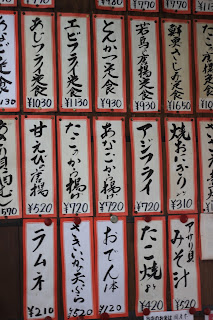 鮮魚さしみ定食
¥1650
若鳥の唐揚定食
¥930
とんかつ定食
¥930
エビフライ定食
¥1030
あじフライ定食
¥930
定食
¥1130
焼おにぎり
¥310
アジフライ
¥520
あなごから揚げ
¥710
たこから揚げ
¥720
甘えび唐揚
¥520
¥570
アサリ貝みそ汁
¥520
たこ焼き
¥420
おでん1本
¥120
さきいか天ぷら
¥520
ラムネ
¥210